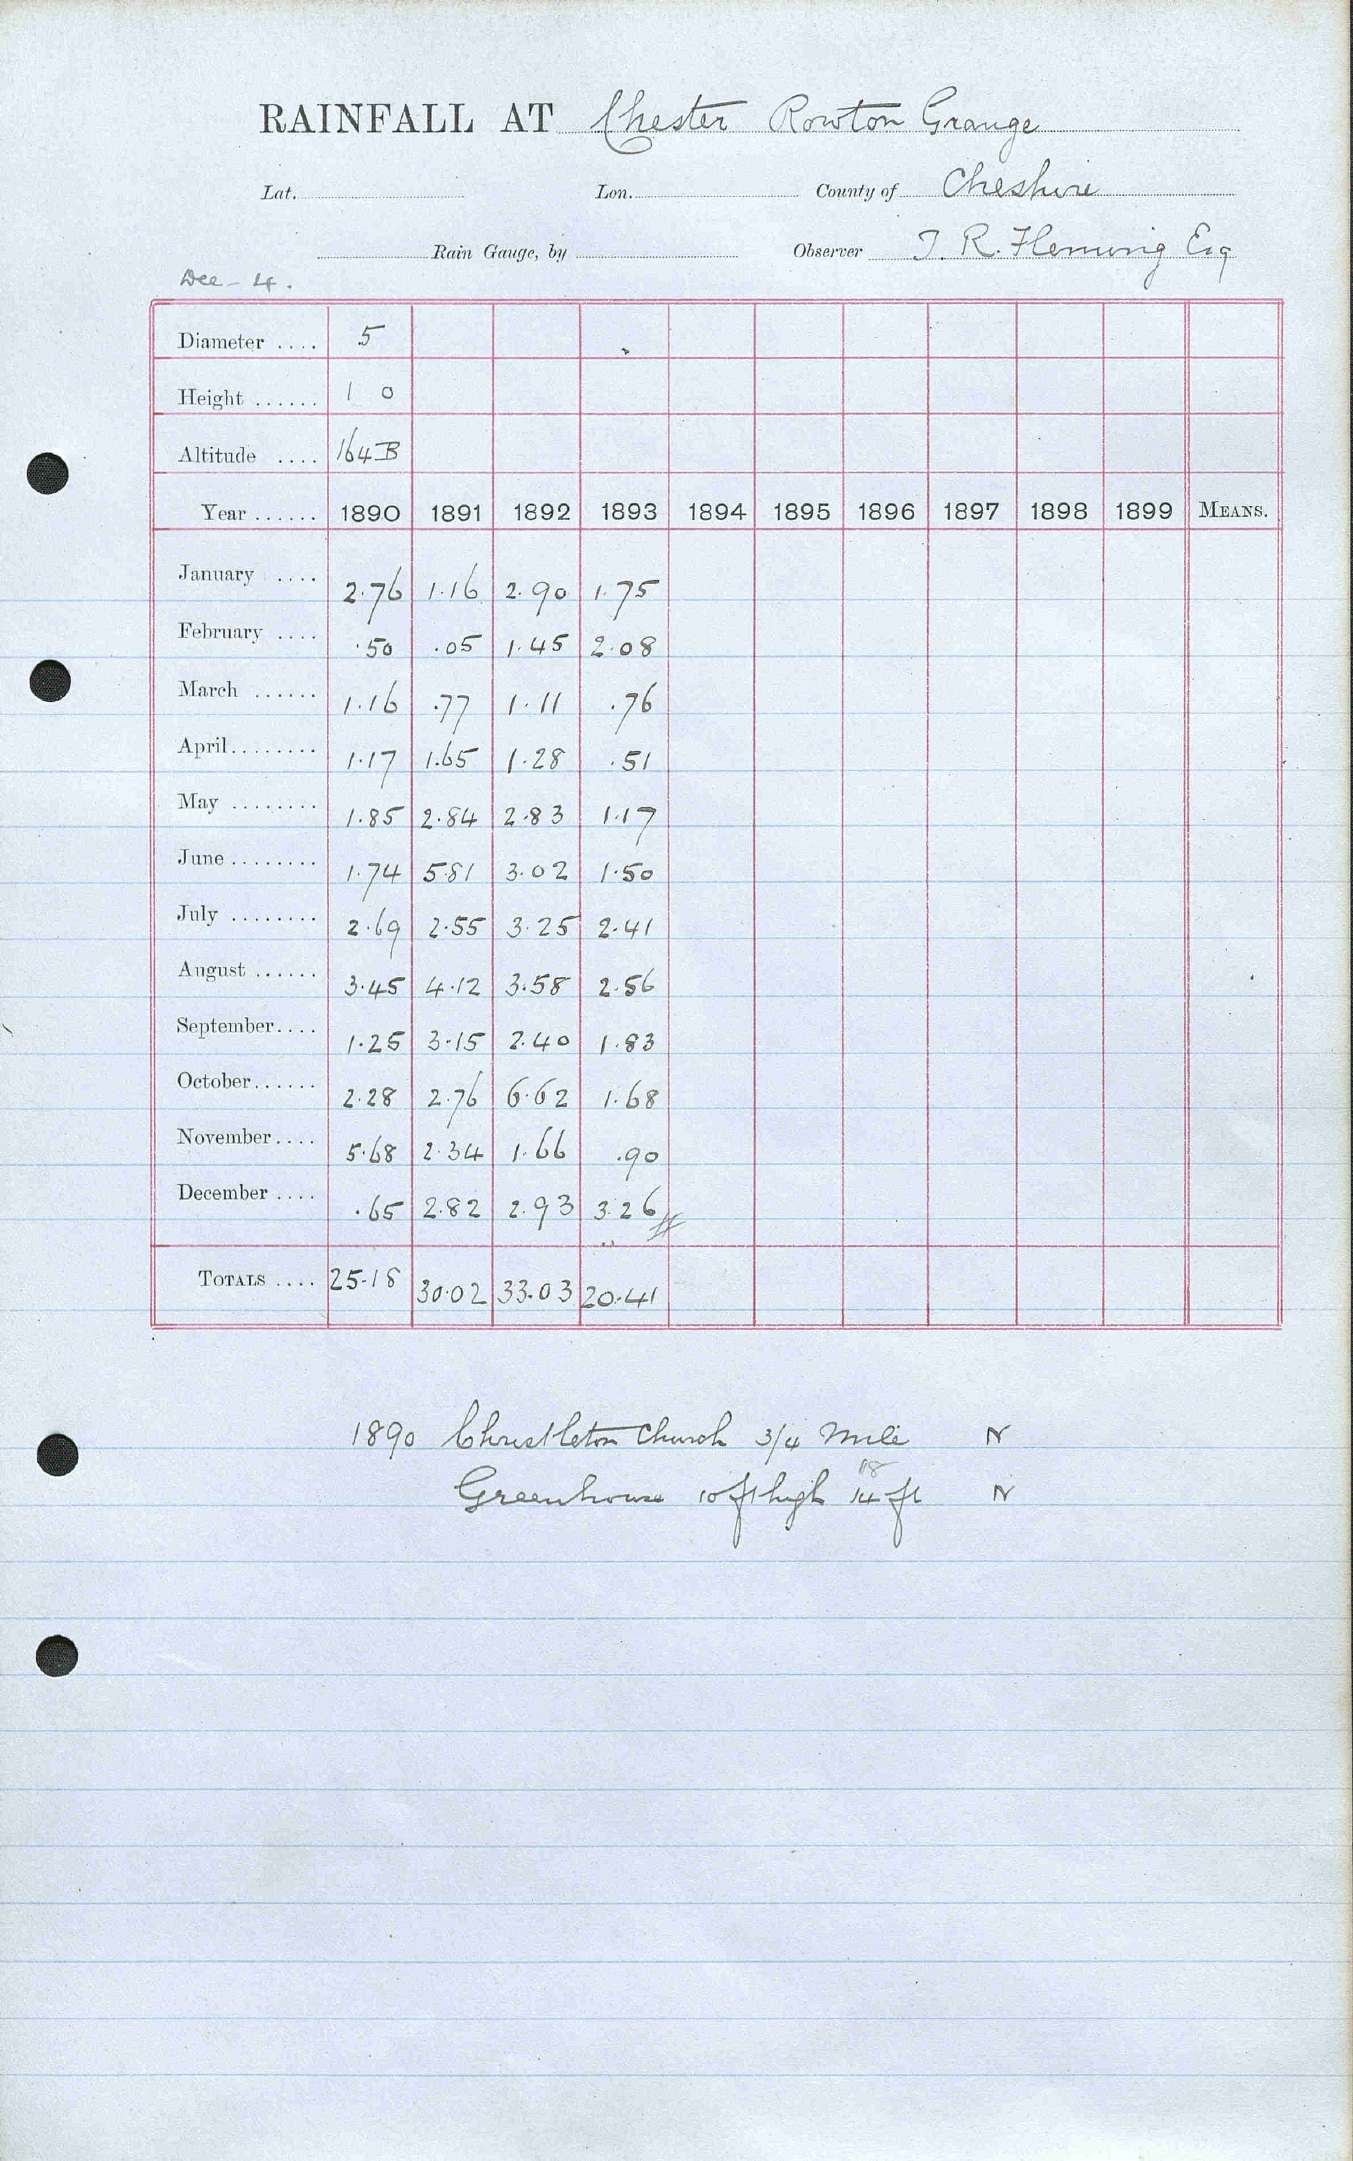 RAINFALL AT Chester Rowton Grange
Lat. Lon. County of Cheshire
Rain Gauge, by Observer T. R. Fleming Esq
Dec - 4.
Diameter .... 5
Height ...... 1 0
Altitude .... 164 B
Year ...... 1890 1891 1892 1893 1894 1895 1896 1897 1898 1899 MEANS.
January .... 2.76 1.16 2.90 1.75
February .... .50 .05 1.45 2.08
March ...... 1.16 .77 1.11 .76
April........ 1.17 1.65 1.28 .51
May ........ 1.85 2.84 2.83 1.17
June ........ 1.74 5.81 3.02 1.50
July ........ 2.69 2.55 3.25 2.41
August ...... 3.45 4.12 3.58 2.56
September.... 1.25 3.15 2.40 1.83
October...... 2.28 2.76 6.62 1.68
November.... 5.68 2.34 1.66 .90
December .... .65 2.82 2.93 3.26
TOTALS .... 25.18 30.02 33.03 20.41
1890 Christleton Church 3/4 Mile N
18
Greenhouse 10 ft high 14 ft N